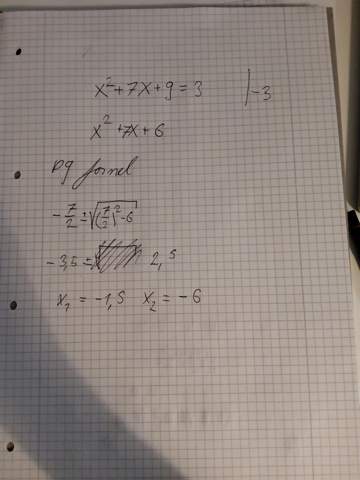 x²+7x+9=3 |-3
x²+7x+6
pq formel
-7/2 ± √((7/2)²-6)
-3,5 ± 2,5
x₁ = -1,5 x₂ = -6